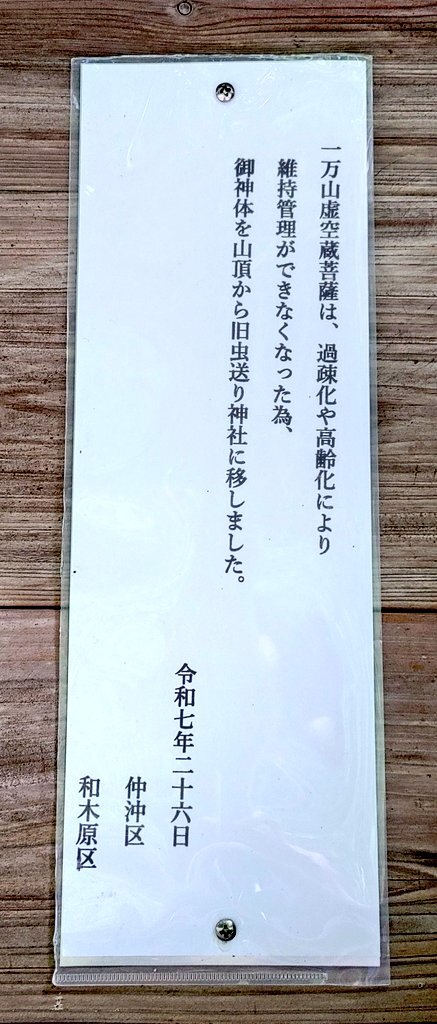 一万山虚空蔵菩薩は、過疎化や高齢化により
維持管理ができなくなった為、
御神体を山頂から旧虫送り神社に移しました。
令和七年二十六日
仲沖区
和木原区